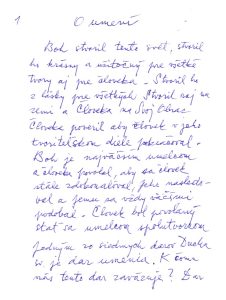 1
O umení
Boh stvoril tento svet, stvoril
ho krásny a užitočný pre všetké
tvory aj pre človeka - Stvoril ho
z lásky pre všetkých. Stvoril raj na
zemi a Človeka na Svoj Obraz
Človeka poveril aby človek v jeho
tvoriteľskom diele pokračoval -
Boh je najväčším umelcom
a človeka povolal, aby sa človek
stále zdokonaľoval, Jeho nasledo-
val a Jemu sa vždy väčšmi
podobal - Človek bol povolaný
stať sa umelcom spolutvorcom
Jedným zo siedmych darov Ducha
sv. je dar umenia. K čomu
nás tento dar zaväzuje? Dar